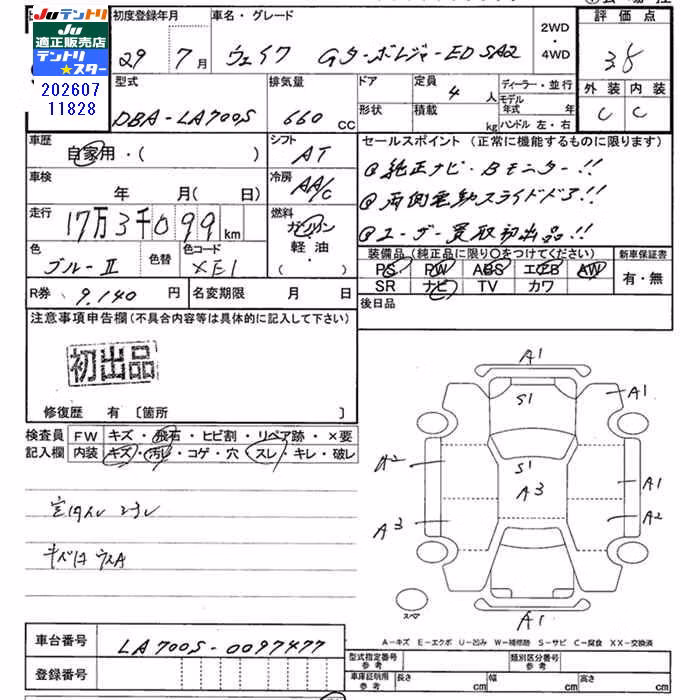 Juテントリ
Ju
適正販売店
テントリ
★スター
202607
11828
初度登録年月
29 7月
車名・グレード
ウェイク Gターボレジャー-ED SA2
2WD
・
4WD
評価点
3.5
外装 内装
C C
型式
DBA-LA700S
排気量
660 CC
ドア
形状
定員
4 人
積載
kg
ディーラー・並行
モデル
年式 年
ハンドル 左・右
車歴
自家用・( )
シフト
AT
車検
年 月( 日)
冷房
AA/C
走行
17万3千099 km
燃料
ガソリン
軽・油
・( )
色
ブルーⅡ
色替
色コード
R券 9.140 円
名変期限 月 日
セールスポイント (正常に機能するものに限ります)
@純正ナビ・Bモニター!!
@両側電動スライドドア!!
@ユーザー買取初出品!!
装備品(純正品に限り○をつけてください)
新車保証書
PS PW ABS エアB AW
SR ナビ TV カワ
有・無
後日品
注意事項申告欄(不具合内容等は具体的に記入して下さい)
初出品
修復歴 有 〔箇所 〕
検査員
記入欄
FW キズ・飛石・ヒビ割・リペア跡・×要
内装 キズ・汚レ・コゲ・穴・スレ・キレ・破レ
A1
A1
S1
A2
S1
A3
A1
A3
A2
A1
スペア
A-キズ E-エクボ U-凹み W-補修跡 S-サビ C-腐食 XX-交換済
車台番号
LA700S-0097477
登録番号
型式指定番号
参考
類別区分番号
車庫証明用
参考
長さ cm
幅 cm
高さ cm